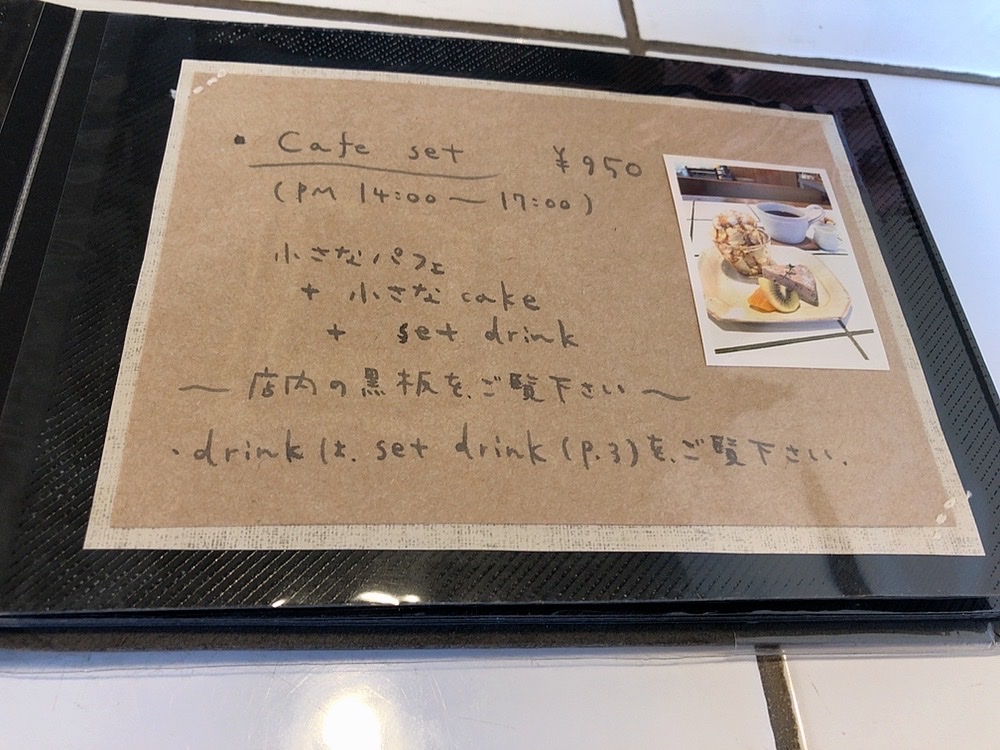 ・Cafe set ¥950
(PM 14:00〜17:00)
小さなパフェ
+ 小さな cake
+ set drink
〜 店内の黒板を、ご覧下さい 〜
・drinkは、set drink (P.3)を、ご覧下さい.